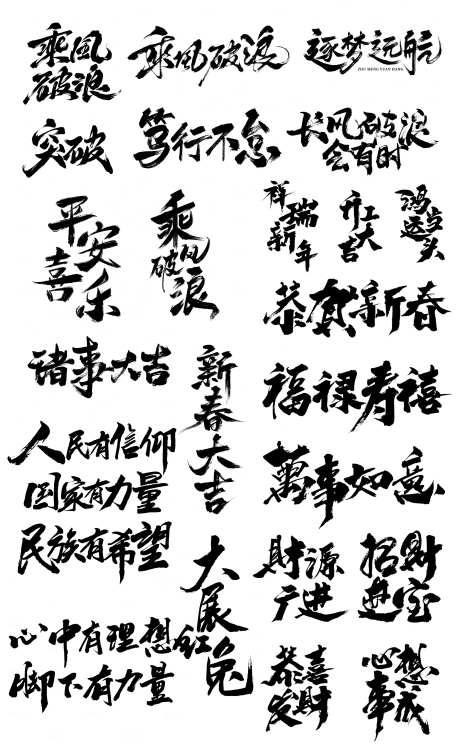 乘風
破浪
乘风破浪
逐梦远航
ZHU MENG YUAN HANG
突破
笃行不怠
长风破浪
会有时
平安
喜乐
乘风
破浪
祥瑞
新年
开工
大吉
鸿运
当头
恭贺新春
诸事大吉
新春大吉
福禄寿禧
人民有信仰
国家有力量
民族有希望
萬事如意
大展红兔
財源
广进
招财
进宝
心中有理想
脚下有力量
恭喜
发財
心想
事成